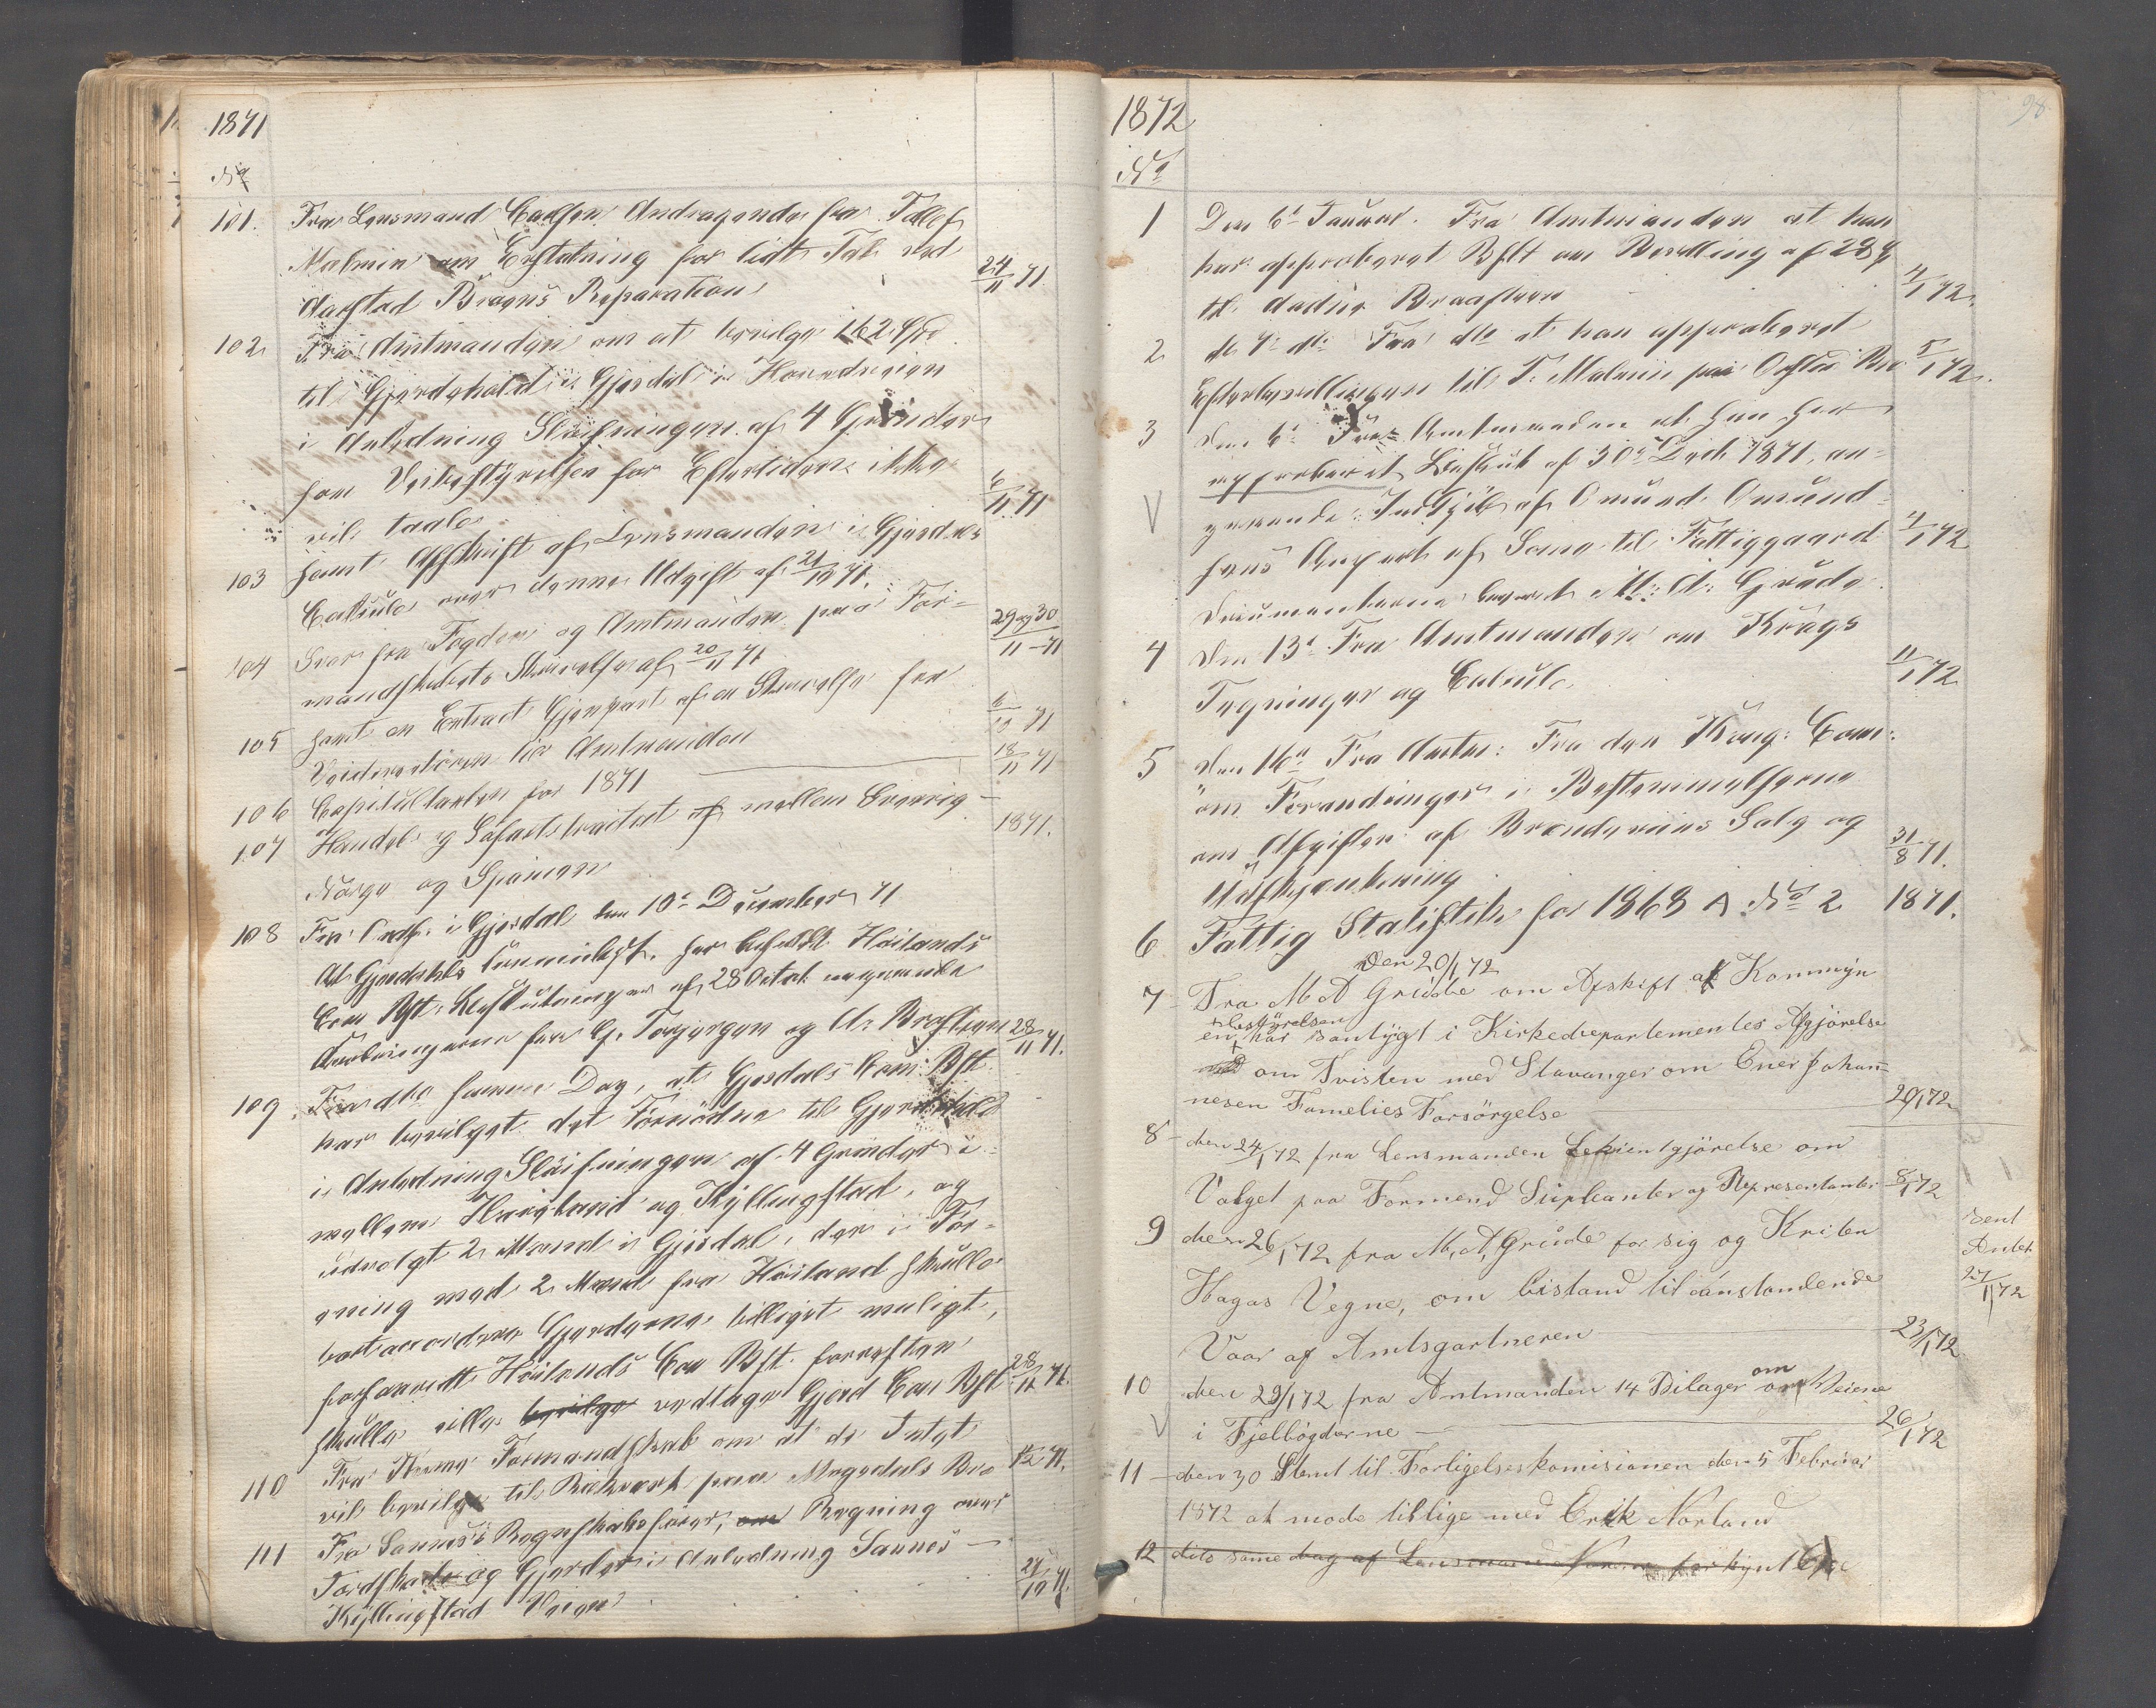 1871
No
101. Fra Lensmand Carlsen Andragende fra Tollef
Malmin om Erstatning for lidt Tab ved
Aarstad Broens Reparation 24/11 71.
102 Fra Amtmanden om at bevilge 162 Spd
til Gjerdehold i Gjesdal i Hovedveien
i Anledning Sløifningen af 4 Grinder
som Veibestyrelsen for Eftertiden ikke
vil taale 6/11 71
103 samt Afskrift af Lensmanden i Gjesdals
Calkule over denne Udgift af 21/10 71.
104 Svar fra Fogden og Amtmanden paa For-
mandskabets Skrivelse af 20/11 71 29 og 30/11 - 71
105 samt en Extract Gjenpart af en Skrivelse fra
Veidirectøren til Amtmanden 6/10 71
106 Capitultaxten for 1871 18/11 71
107 Handels og Søfartstraktat af mellem Sverrig-
Norge og Spanien 1871.
108 Fra Ordf. i Gjesdal den 10de December 71
At Gjesdahls Communebest. har Høilands
Com Bst. Beslutninger af 28 Octob angaaende
fra G. Torgersen og 28/11 71.
109. Fra dto samme Dag, at Gjesdals Com: Bst.
har bevilget det Fornødne til Gjerdehold
i Anledning Sløifningen af 4 Grinder i
mellem Haugland og Kyllingstad, og
udvalgt 2 Mænd i Gjesdal, der i For-
ening med 2 Mænd fra Høiland skulle
bortaccordere Gjerderne billigst muligt,
forsaavidt Høilands Com Bst. forresten
skulle ville bevilge vedtage Gjesd Com Bst 28/11 71.
110 Fra Formandskab om at de Intet
vil bevilge til Rækværk paa Bro 1/12 71.
111 Fra Sannes's Regnskabsfører, om Regning over
Jordskade og Gjerder i Anledning Sannes-
Kyllingstad Veien 21/12 71.
1872
98
No
1 Den 6te Januar. Fra Amtmanden at han
har approberet Bslt om Bevilling af 28
til Braastein 4/1 72.
2 de 7de do: Fra dto at han approberet
Efterbevillingen til T. Malmin paa Bro 5/1 72.
3 Den 6te Fra Amtmanden at han har
approberet Beslut af 30te Decb 1871, an-
gaaende Indkjøb af Omund Omund-
sens Anpart af til Fattiggaard 4/1 72
V
Documenterne M: A: Grude.
4 Den 13de Fra Amtmanden om Krags
Tegninger og Calcule. 11/1 72
5 Den 16de Fra Amtm: Fra den Kong: Com:
om Forandringer i Bestemmelserne
om Afgiften af Brændeviins Salg og
Udskjænkning 31/8 71.
6 Fattig Statistik for 1868 A No 2 1871.
Den 20/1 72
7 - Fra M A Grude om Afskift af Kommyn
bestyrelsen
en har samtygt i Kirkedepartementes Afgjørelse
om Tvisten med Stavanger om Ener Johan=
nesen Famelies Forsørgelse 20/1 72
8 - den 24/1 72 fra Lensmanden Bekientgjørelse om
Valget paa Formend Supleanter og Representanter 8/1 72
9 den 26/1 72 fra M, A, Grude for sig og Kristen
Hagas Vegne, om bistand til anstaaendende
Vaar af Amtsgartneren 23/1 72
sent
Anbet
27/1 72
10 den 29/1 72 fra Amtmanden 14 Bilager om om Veiene
V i Fjelbøgderne 26/1 72
11 - den 30 Stevnt til Forligelseskomisionen den 5 Februar
1872 at møde tillige med Erik Norland
12 dito same dag af Lensmand forkynt